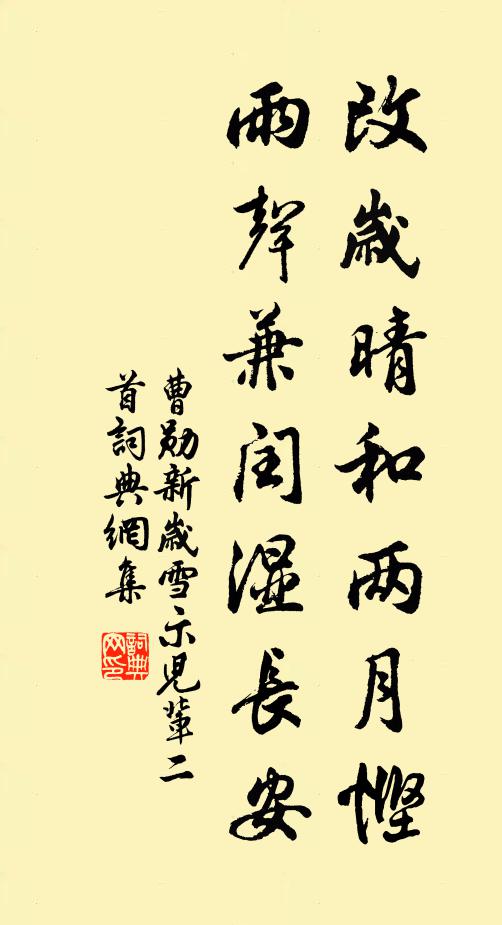 改歲晴和两月慳
雨聲兼闰濕長安
曹勛新歲雪示兒輩二
首詞典網集
詞典网印